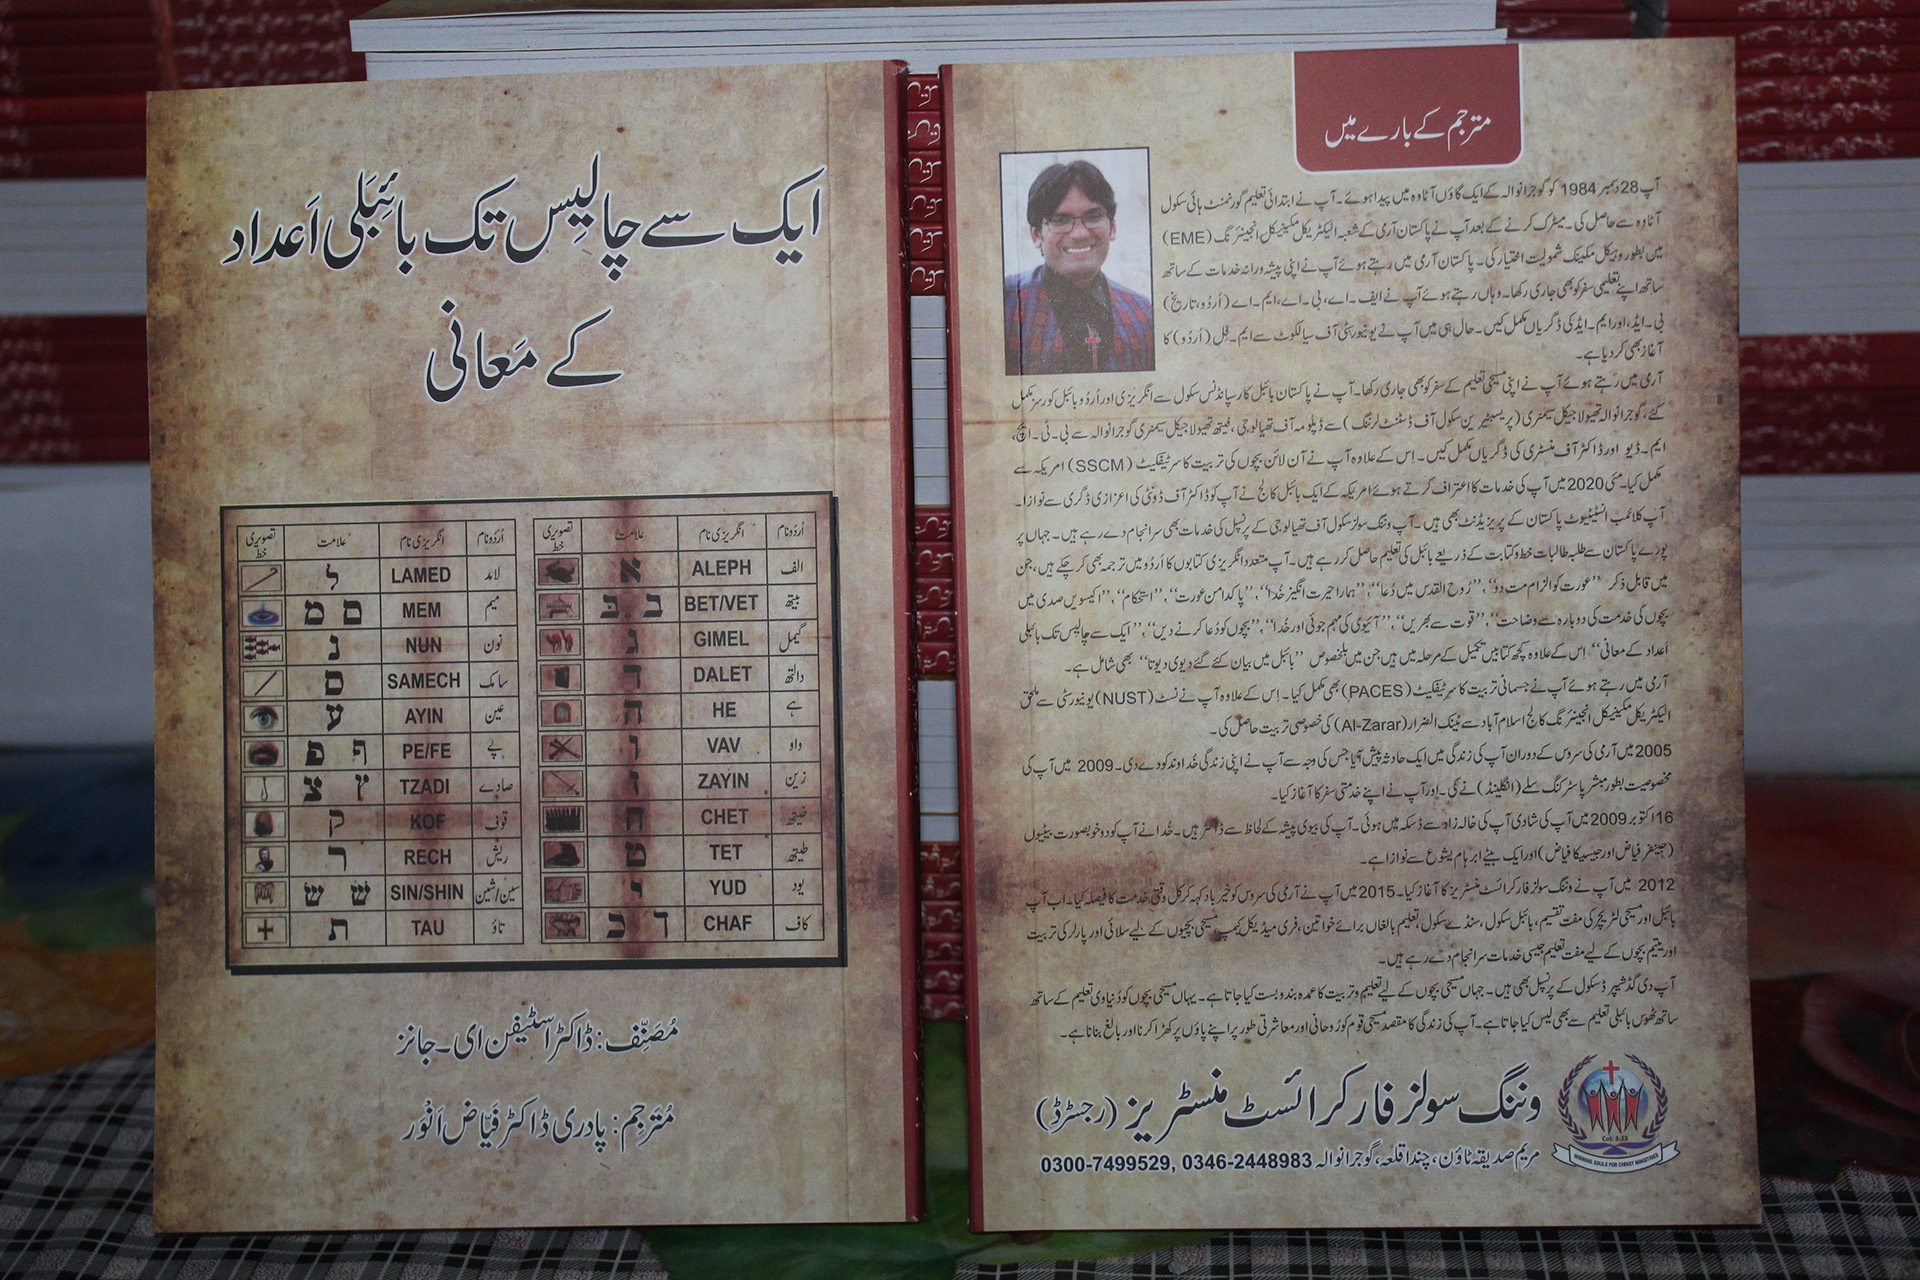 ایک سے چالیس تک بائبلی اَعداد
کے مَعانی
اُردُو نام انگریزی نام علامت تصویری خط
الف ALEPH א
بیتھ BET/VET ב בּ
گیمل GIMEL ג
دالتھ DALET ד
ہے HE ה
واو VAV ו
زین ZAYIN ז
خیتھ CHET ח
طیتھ TET ט
یود YUD י
کاف CHAF ך כ
اُردُو نام انگریزی نام علامت تصویری خط
لامد LAMED ל
میم MEM ם מ
نون NUN נ
سامک SAMECH ס
عین AYIN ע
پے PE/FE ף פ
صادے TZADI ץ צ
قوف KOF ק
ریش RECH ר
سین/شین SIN/SHIN שׁ שׂ
تاؤ TAU ת
مُصَنِّف: ڈاکٹر اسٹیفن ای۔ جانز
مُترجِم: پادری ڈاکٹر فیّاض اَنْوَر
مترجم کے بارے میں
آپ 28 دسمبر 1984 کو گوجرانوالہ کے ایک گاؤں آٹاوہ میں پیدا ہوئے۔ آپ نے ابتدائی تعلیم گورنمنٹ ہائی سکول
آٹاوہ سے حاصل کی۔ میٹرک کرنے کے بعد آپ نے پاکستان آرمی کے شعبہ الیکٹریکل مکینیکل انجینئرنگ (EME)
میں بطور وہیکل مکینک شمولیت اختیار کی۔ پاکستان آرمی میں رہتے ہوئے آپ نے اپنی پیشہ ورانہ خدمات کے ساتھ
ساتھ اپنے تعلیمی سفر کو بھی جاری رکھا۔ وہاں رہتے ہوئے آپ نے ایف۔اے، بی۔اے، ایم۔اے (اُردُو، تاریخ)
بی۔ایڈ، اور ایم۔ایڈ کی ڈگریاں مکمل کیں۔ حال ہی میں آپ نے یونیورسٹی آف سیالکوٹ سے ایم۔فل (اُردُو) کا
آغاز بھی کر دیا ہے۔
آرمی میں رہتے ہوئے آپ نے اپنی مسیحی تعلیم کے سفر کو بھی جاری رکھا۔ آپ نے پاکستان بائبل کارسپانڈنس سکول سے انگریزی اور اُردُو بائبل کورسز مکمل
کئے، گوجرانوالہ تھیولاجیکل سیمنری (پریسبیٹیرین سکول آف ڈسٹنٹ لرننگ) سے ڈپلومہ آف تھیالوجی، فیتھ تھیولاجیکل سیمنری گوجرانوالہ سے بی۔ٹی۔ایچ،
ایم۔ڈیو اور ڈاکٹر آف منسٹری کی ڈگریاں مکمل کیں۔ اِس کے علاوہ آپ نے آن لائن بچوں کی تربیت کا سرٹیفکیٹ (SSCM) امریکہ سے
مکمل کیا۔ مئی 2020 میں آپ کی خدمات کا اعتراف کرتے ہوئے امریکہ کے ایک بائبل کالج نے آپ کو ڈاکٹر آف ڈونٹی کی اعزازی ڈگری سے نوازا۔
آپ کلائمب انسٹیٹیوٹ پاکستان کے پریزیڈنٹ بھی ہیں۔ آپ وننگ سولز سکول آف تھیالوجی کے پرنسپل کی خدمات بھی سرانجام دے رہے ہیں۔ جہاں پر
پورے پاکستان سے طلبہ طالبات خط و کتابت کے ذریعے بائبل کی تعلیم حاصل کر رہے ہیں۔ آپ متعدد انگریزی کتابوں کا اُردُو میں ترجمہ بھی کر چکے ہیں، جن
میں قابل ذکر ”عورت کو الزام مت دو“، ”رُوح القدس میں دُعا“، ”ہمارا حیرت انگیز خُدا“، ”پاکدامن عورت“، ”استحکام“، ”اکیسویں صدی میں
بچوں کی خدمت کی دوبارہ سے وضاحت“، ”قوت سے بھریں“، ”آئیوی کی مہم جوئی اور خُدا“، ”بچوں کو دُعا کرنے دیں“، ”ایک سے چالیس تک بائبلی
اَعداد کے معانی“ اِس کے علاوہ کچھ کتابیں تکمیل کے مرحلہ میں ہیں جن میں بلخصوص ”بائبل میں بیان کئے گئے دیوی دیوتا“ بھی شامل ہے۔
آرمی میں رہتے ہوئے آپ نے جسمانی تربیت کا سرٹیفکیٹ (PACES) بھی مکمل کیا۔ اِس کے علاوہ آپ نے نسٹ (NUST) یونیورسٹی سے ملحق
الیکٹریکل مکینیکل انجینئرنگ کالج اسلام آباد سے ٹینک الضرار (Al-Zarar) کی خصوصی تربیت حاصل کی۔
2005 میں آرمی کی سروس کے دوران آپ کی زندگی میں ایک حادثہ پیش آیا جس کی وجہ سے آپ نے اپنی زندگی خُداوند کو دے دی۔ 2009 میں آپ کی
مخصوصیت بطور مبشر پاسٹر کنگ سلے (انگلینڈ) نے کی۔ اور آپ نے اپنے خدمتی سفر کا آغاز کیا۔
16 اکتوبر 2009 میں آپ کی شادی آپ کی خالہ زاد سے ڈسکہ میں ہوئی۔ آپ کی بیوی پیشہ کے لحاظ سے ڈاکٹر ہیں۔ خُدا نے آپ کو دو خوبصورت بیٹیوں
(جینفر فیاض اور جیسیکا فیاض) اور ایک بیٹے ابرہام یشوع سے نوازا ہے۔
2012 میں آپ نے وننگ سولز فار کرائسٹ منسٹریز کا آغاز کیا۔ 2015 میں آپ نے آرمی کی سروس کو خیر باد کہہ کر کل وقتی خدمت کا فیصلہ کیا۔ اب آپ
بائبل اور مسیحی لٹریچر کی مفت تقسیم، بائبل سکول، سنڈے سکول، تعلیم بالغاں برائے خواتین، فری میڈیکل کیمپ، مسیحی بچیوں کے لیے سلائی اور پارلر کی تربیت
اور یتیم بچوں کے لیے مفت تعلیم جیسی خدمات سرانجام دے رہے ہیں۔
آپ دی گڈ شیپرڈ سکول کے پرنسپل بھی ہیں۔ جہاں مسیحی بچوں کے لیے تعلیم و تربیت کا عمدہ بندوبست کیا جاتا ہے۔ یہاں مسیحی بچوں کو دُنیاوی تعلیم کے ساتھ
ساتھ ٹھوس بائبلی تعلیم سے بھی لیس کیا جاتا ہے۔ آپ کی زندگی کا مقصد مسیحی قوم کو رُوحانی اور معاشرتی طور پر اپنے پاؤں پر کھڑا کرنا اور بالغ بنانا ہے۔
وننگ سولز فار کرائسٹ منسٹریز (رجسٹرڈ)
مریم صدیقہ ٹاؤن، چندا قلعہ، گوجرانوالہ 0300-7499529, 0346-2448983
Col: 3:23
WINNING SOULS FOR CHRIST MINISTRIES